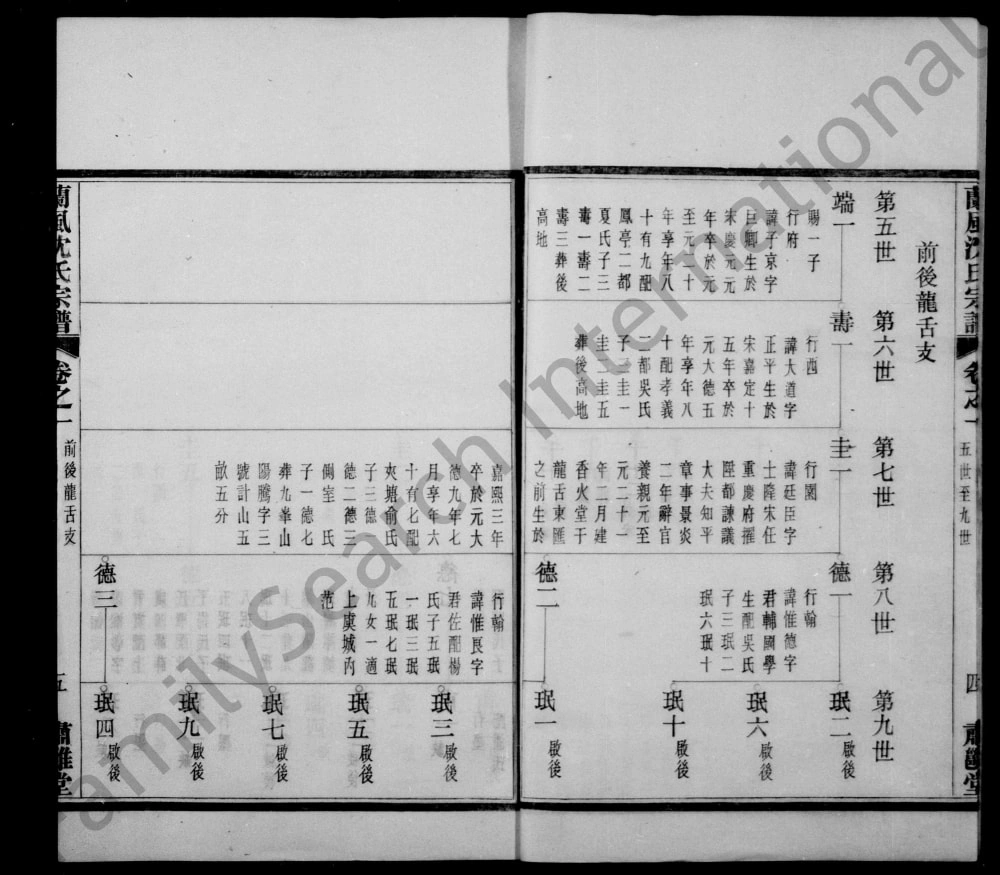 蘭風沈氏宗譜
卷之一
五世至九世
四
前後龍舌支
第五世
第六世
第七世
第八世
第九世
端一
賜一子
行府
諱子京字
巨卿生於
宋慶元元
年卒於元
至元二十
年享年八
十有九配
鳳亭二都
夏氏子三
壽一壽二
壽三葬後
高地
壽一
行西
諱大道字
正平生於
宋嘉定十
五年卒於
元大德五
年享年八
十配孝義
二都吳氏
子三圭一
圭二圭五
葬後高地
圭一
行園
諱廷臣字
士隆宋任
重慶府擢
陞都諫議
大夫知平
章事景炎
二年辭官
養親元至
元二十一
年二月建
香火堂于
龍舌東匯
之前生於
嘉熙三年
卒於元大
德九年七
月享年六
十有七配
夾塘俞氏
子三德一
德二德三
側室 氏
子一德七
陽騰字三
葬九峯山
號計山五
畝五分
德一
行翰
諱惟德字
君輔國學
生配吳氏
子三珉二
珉六珉十
德二
行翰
諱惟良字
君佐配楊
氏子五珉
一珉三珉
五珉七珉
九女一適
上虞城內
范
德三
珉二 啟後
珉六 啟後
珉十 啟後
珉一 啟後
珉三 啟後
珉五 啟後
珉七 啟後
珉九 啟後
珉四 啟後
蘭風沈氏宗譜
卷之一
前後龍舌支
五
肅雝堂
FamilySearch International